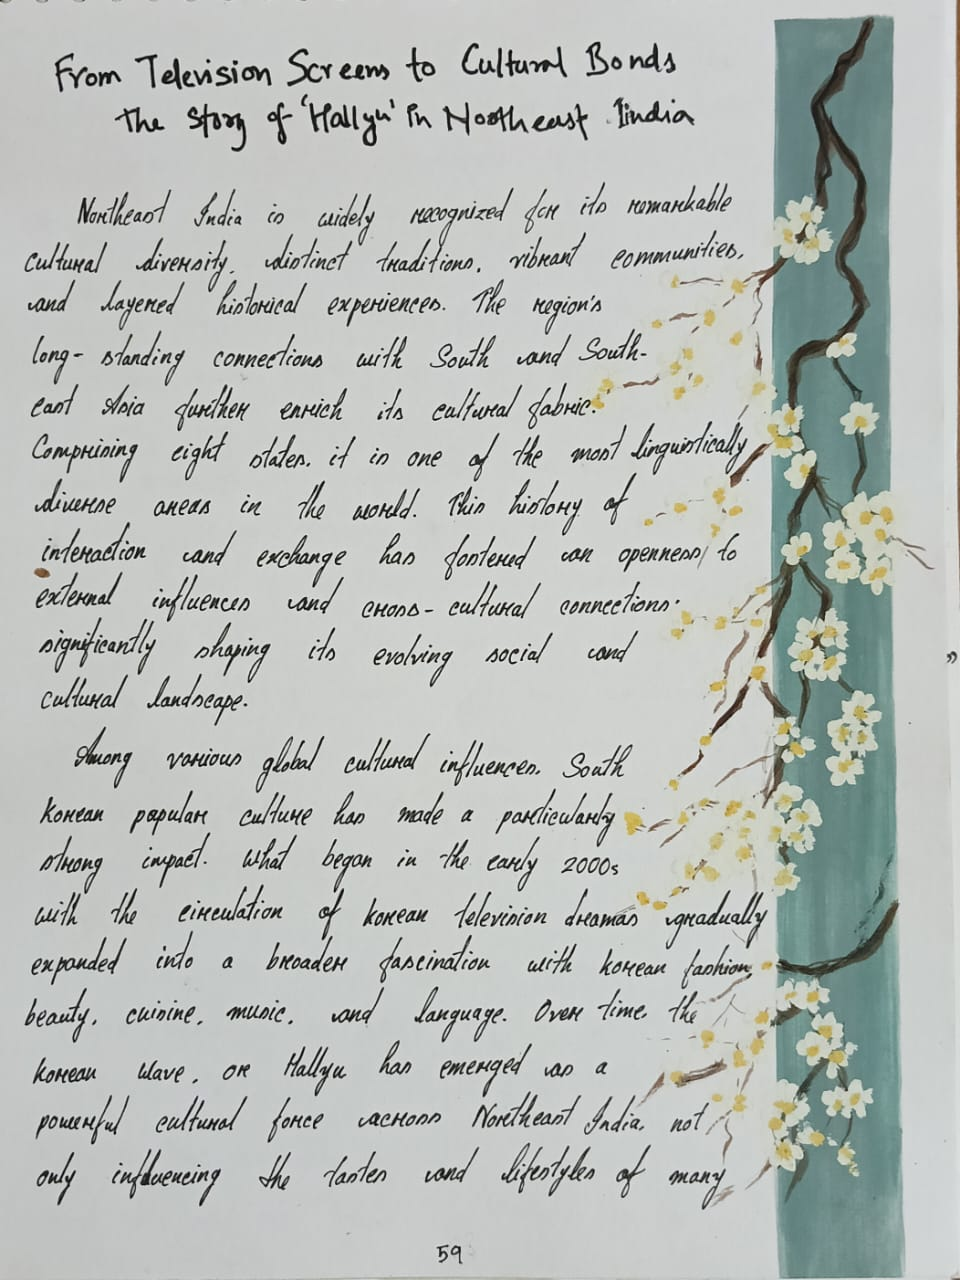 From Television Screens to Cultural Bonds
The Story of 'Hallyu' in Northeast India
Northeast India is widely recognized for its remarkable
cultural diversity, distinct traditions, vibrant communities,
and layered historical experiences. The region's
long-standing connections with South and South-
east Asia further enrich its cultural fabric.
Comprising eight states, it is one of the most linguistically
diverse areas in the world. This history of
interaction and exchange has fostered an openness to
external influences and cross-cultural connections.
significantly shaping its evolving social and
cultural landscape.
Among various global cultural influences, South
Korean popular culture has made a particularly
strong impact. What began in the early 2000s
with the circulation of Korean television dramas gradually
expanded into a broader fascination with Korean fashion,
beauty, cuisine, music, and language. Over time, the
Korean Wave, or Hallyu has emerged as a
powerful cultural force across Northeast India, not
only influencing the tastes and lifestyles of many
59